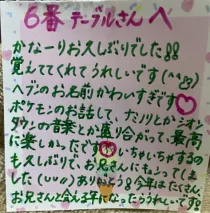 6番テーブルさんへ
かなーりお久しぶりでした!!
覚えててくれてうれしいです(^^)
ヘブンのお名前かわいすぎです♡
ポケモンのお話して、たいりとかシオン
タウンの音楽とか盛り合がって、最高
に楽しかったです♡いちゃいちゃするの
も久しぶりで、お兄さんにもってしま
した(uu)ありがとう!今年はたくさん
お兄さんと会える年になったらうれしいです!